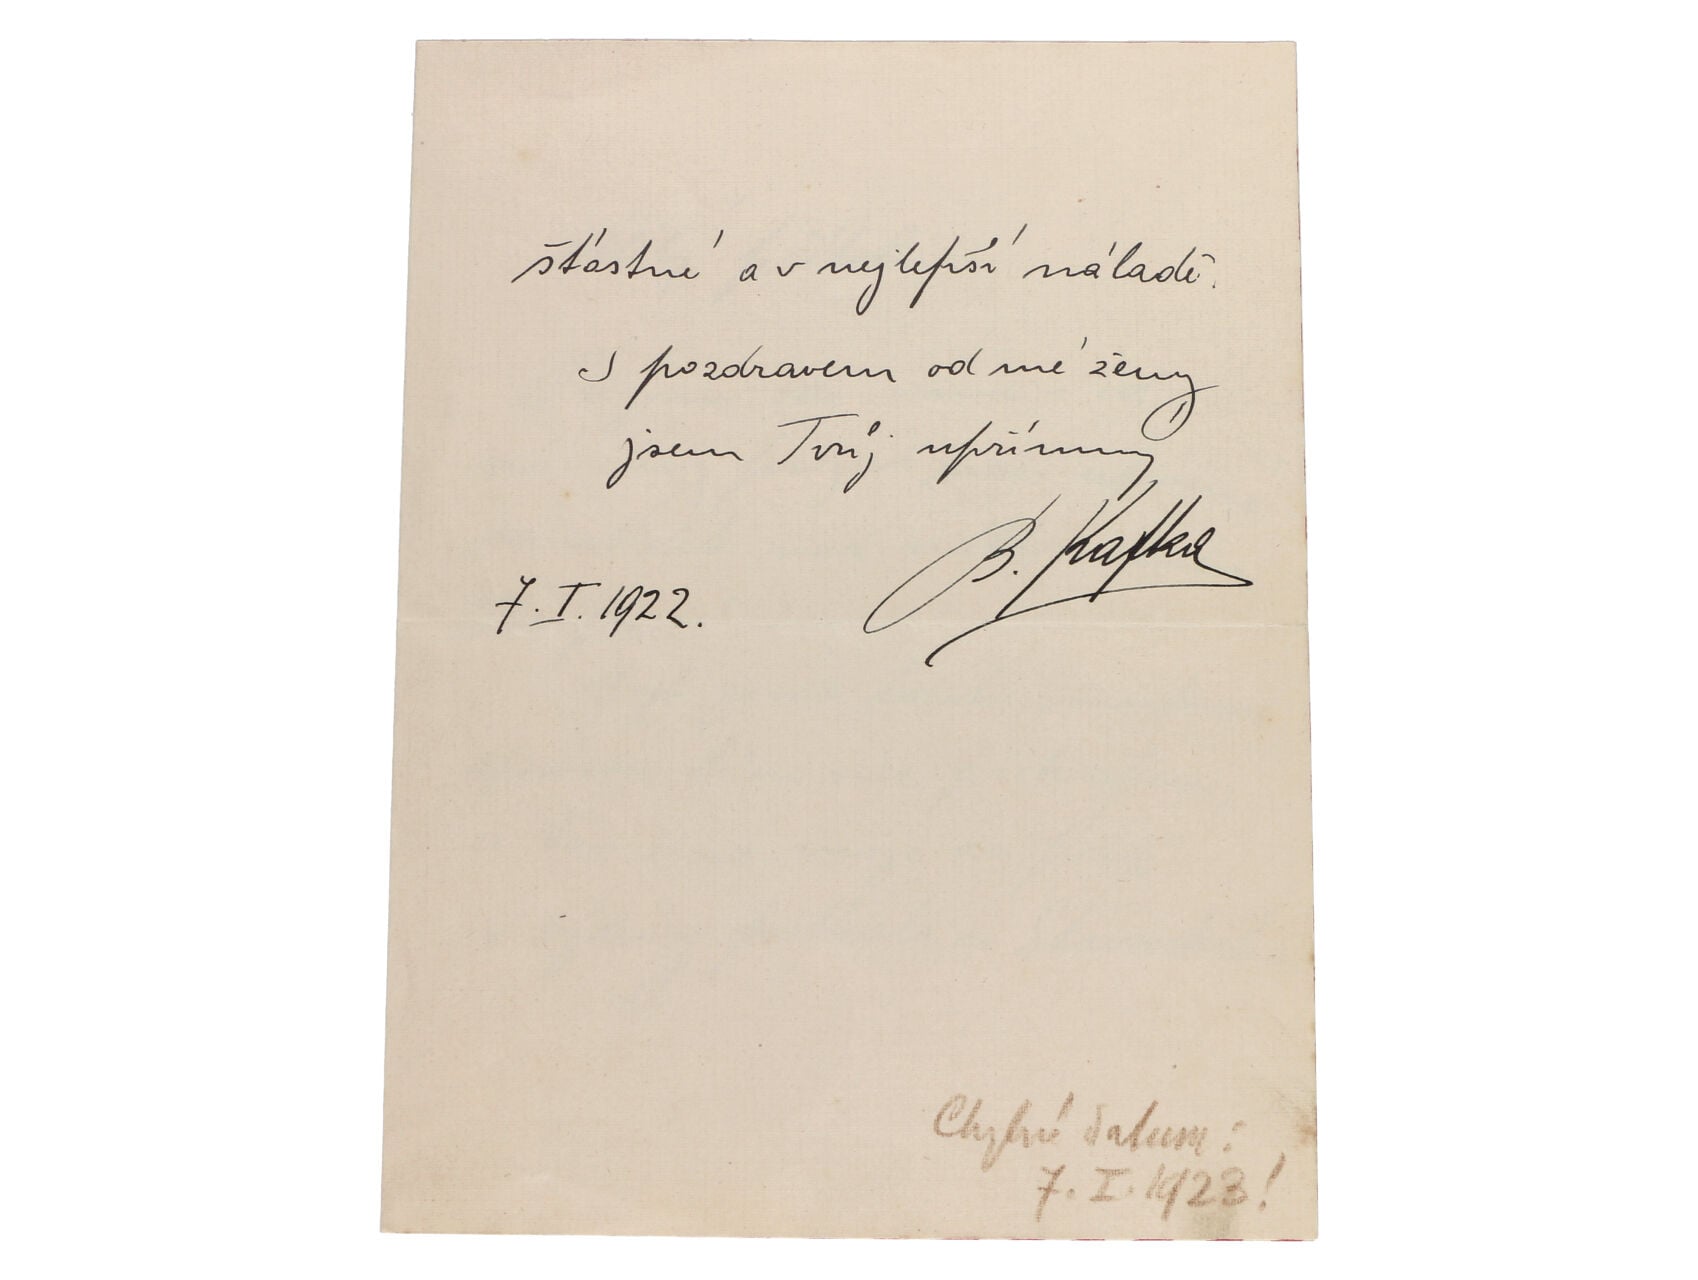 šťastné a v nejlepší náladě.
S pozdravem od mé ženy
jsem Tvůj upřímný
B. Kafka
7. I. 1922.
Chybné datum:
7. I. 1923!